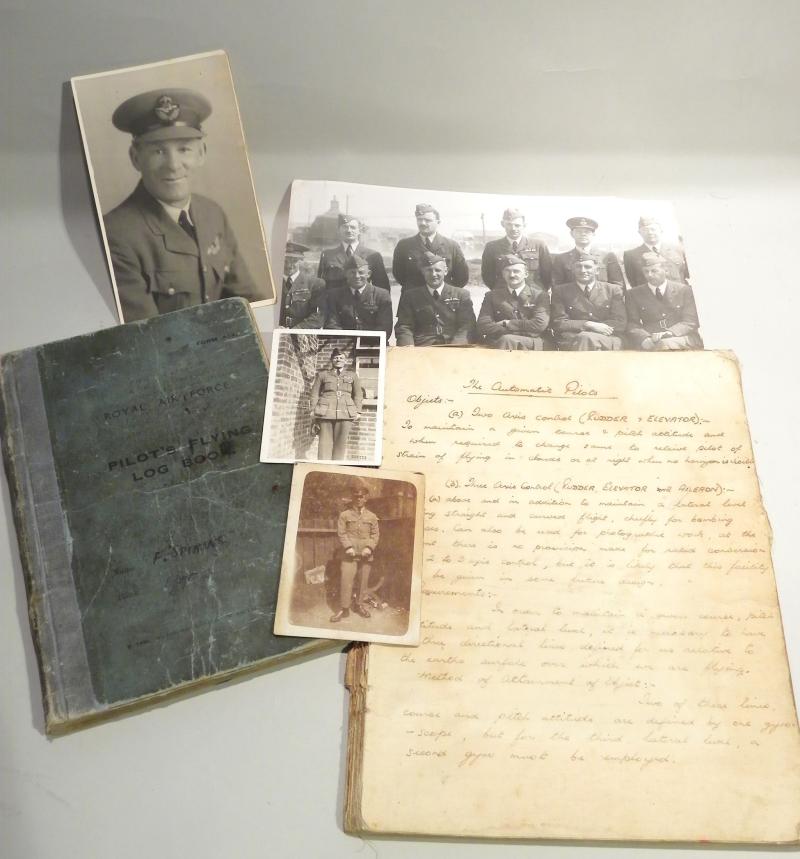 ROYAL AIR FORCE
PILOT'S FLYING
LOG BOOK
The Automatic Pilots
Objects:-
(a) Two Axis Control (RUDDER & ELEVATOR):-
To maintain a given course & pitch attitude and
when required to change same to relieve pilot of
strain of flying in clouds or at night when no horizon is
(B). Three Axis Control (RUDDER, ELEVATOR and AILERON):-
(a) above and in addition to maintain a lateral level
straight and curved flight, chiefly for bombing
Can also be used for photographic work, at the
there is no provision made for rapid conversion
2 to 3 axis control, but it is likely that this facility
be given in some future design.
In order to maintain a given course, pitch
and lateral level, it is necessary to have
three directional lines defined for us relative to
the earths surface over which we are flying.
Method of Attainment of Object:-
Two of these lines,
course and pitch attitude are defined by one gyro-
-scope, but for the third lateral line, a
second gyro must be employed.